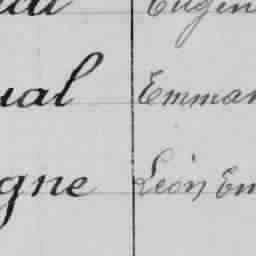 Eugen
ual Emman
gne Léon Em